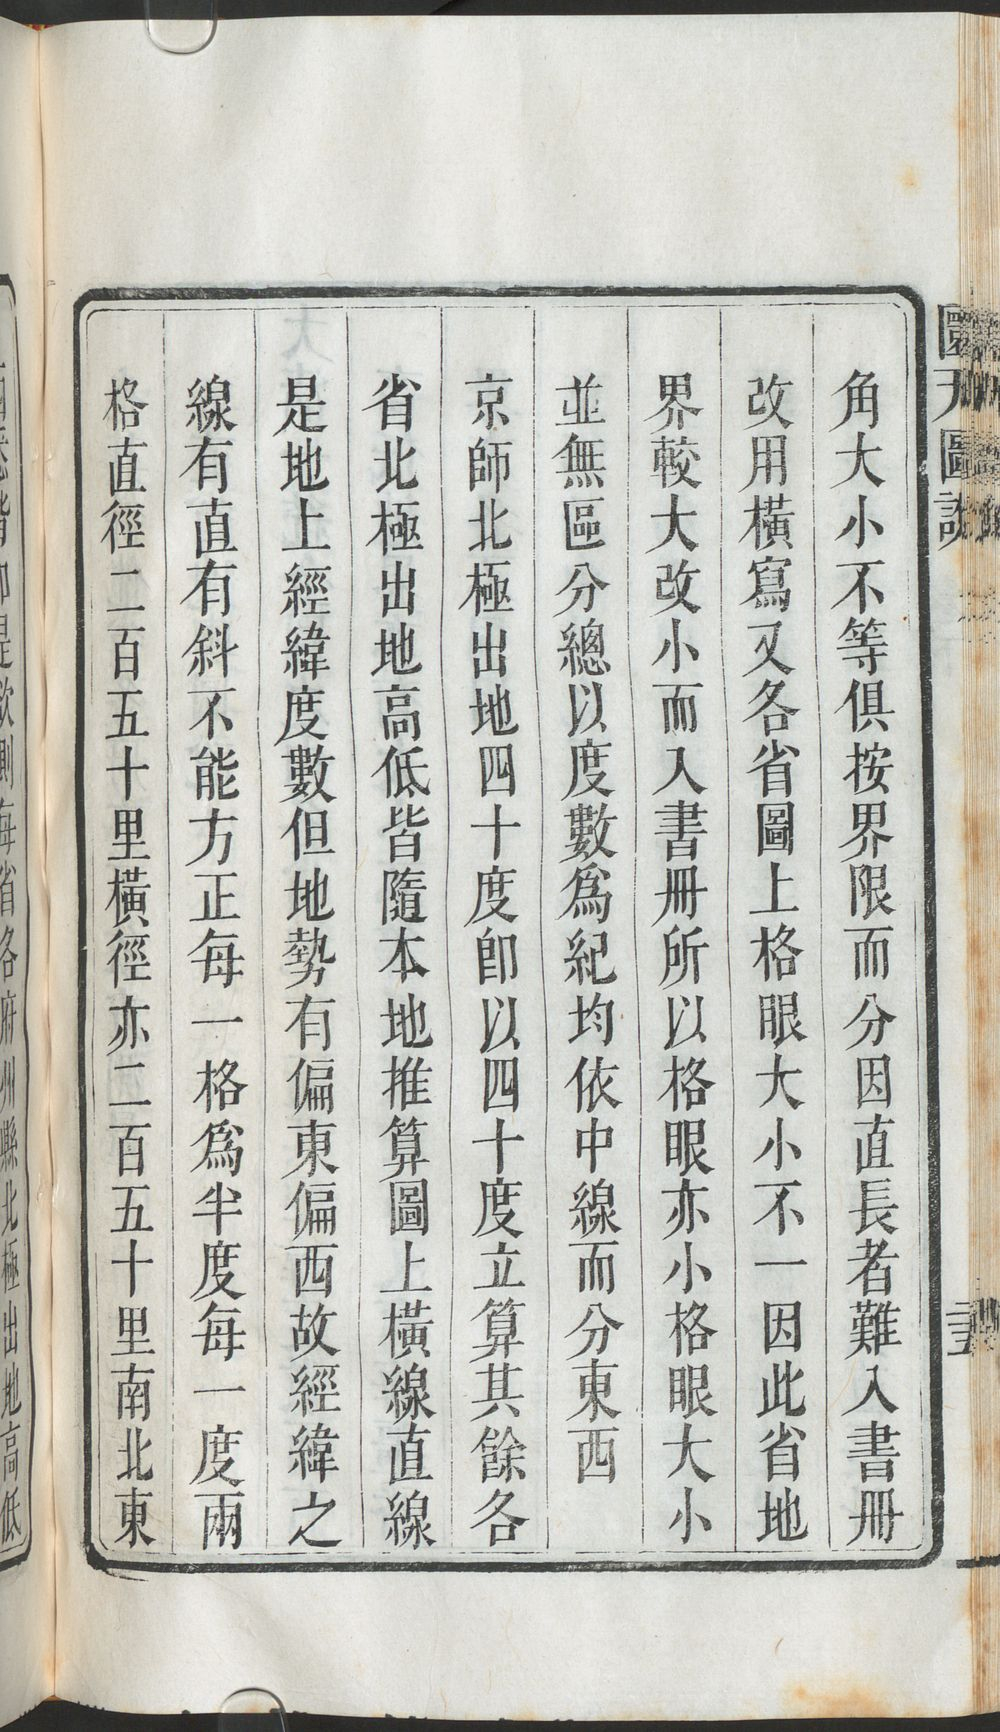 角大小不等俱按界限而分因直長者難入書冊
改用橫寫又各省圖上格眼大小不一因此省地
界較大改小而入書冊所以格眼亦小格眼大小
並無區分總以度數爲紀均依中線而分東西
京師北極出地四十度卽以四十度立算其餘各
省北極出地高低皆隨本地推算圖上橫線直線
是地上經緯度數但地勢有偏東偏西故經緯之
線有直有斜不能方正每一格爲半度每一度兩
格直徑二百五十里橫徑亦二百五十里南北東
每省各府州縣北極出地高低